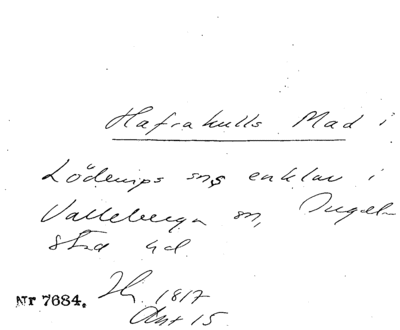 Hafrakulls Mad i
Löderups sns enklav i
Valleberga sn, Ingel-
stad hd
Nr 7684. 1817
Akt 15